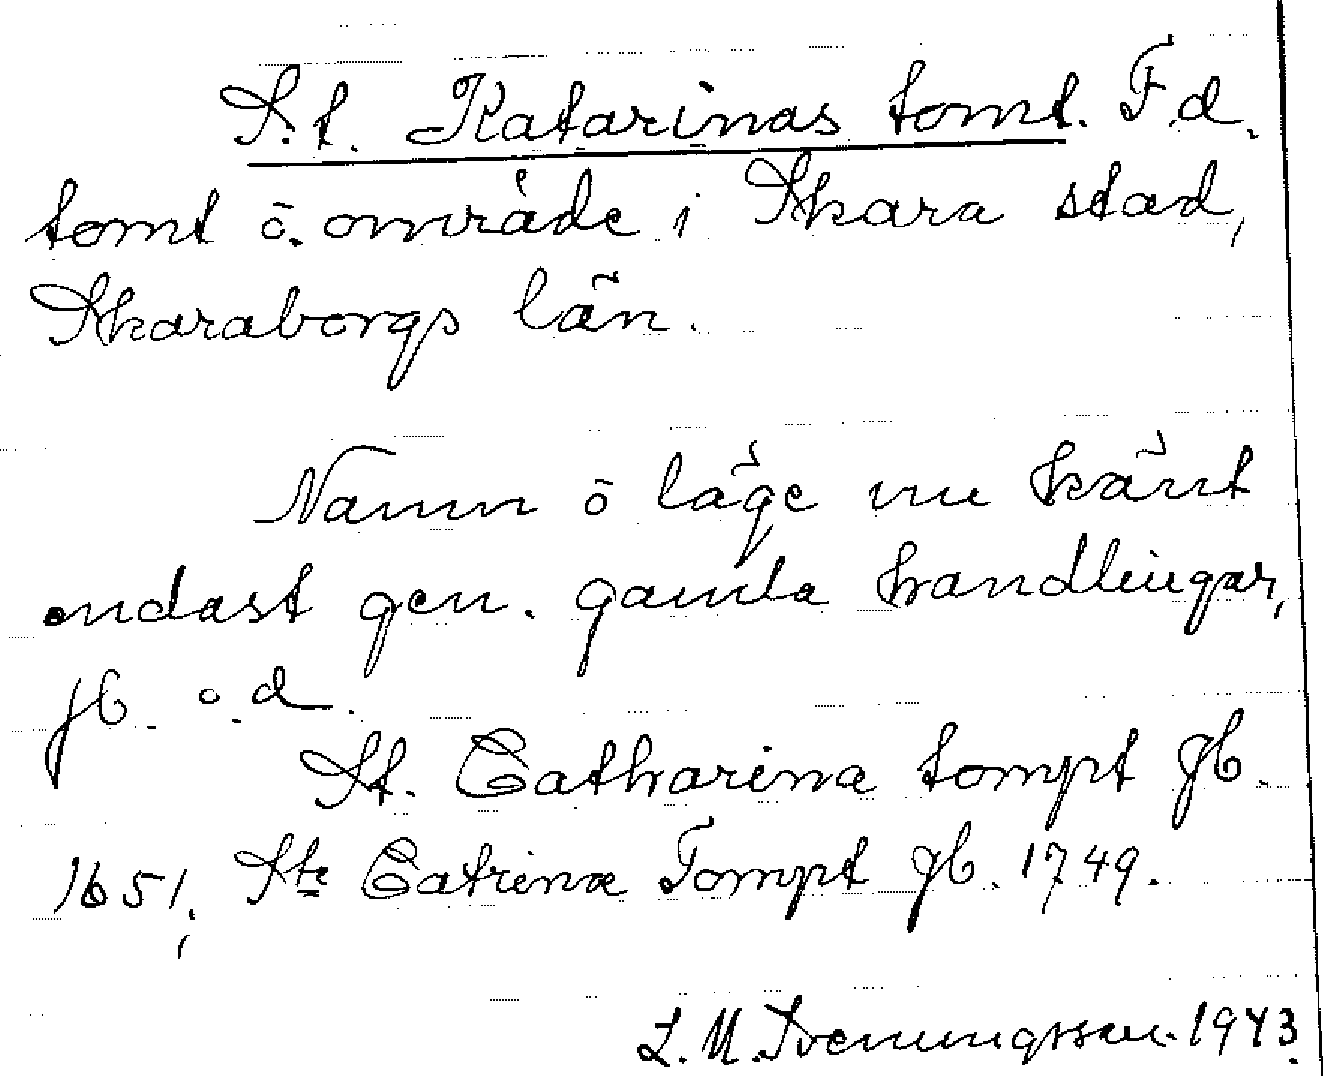 S:t. Katarinas tomt. F.d.
tomt o. område i Skara stad,
Skaraborgs län.
Namn o läge nu känt
endast gen. gamla handlingar,
jb. o.d.
St. Catharinæ tompt Jb.
1651; Ste Catrinæ Tompt Jb. 1749.
L. M. Svenungsson. 1943.